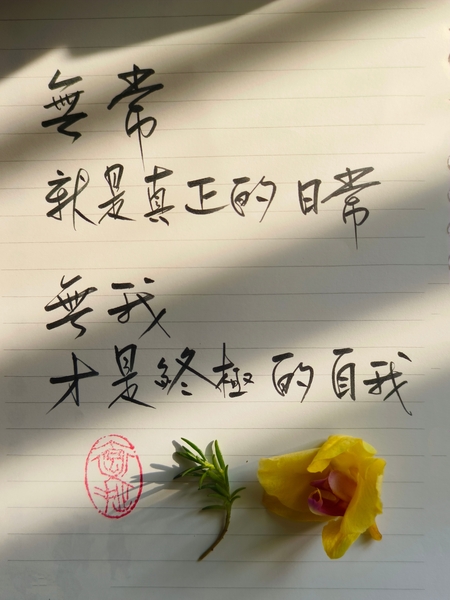 無常
就是真正的日常
無我
才是終極的自我